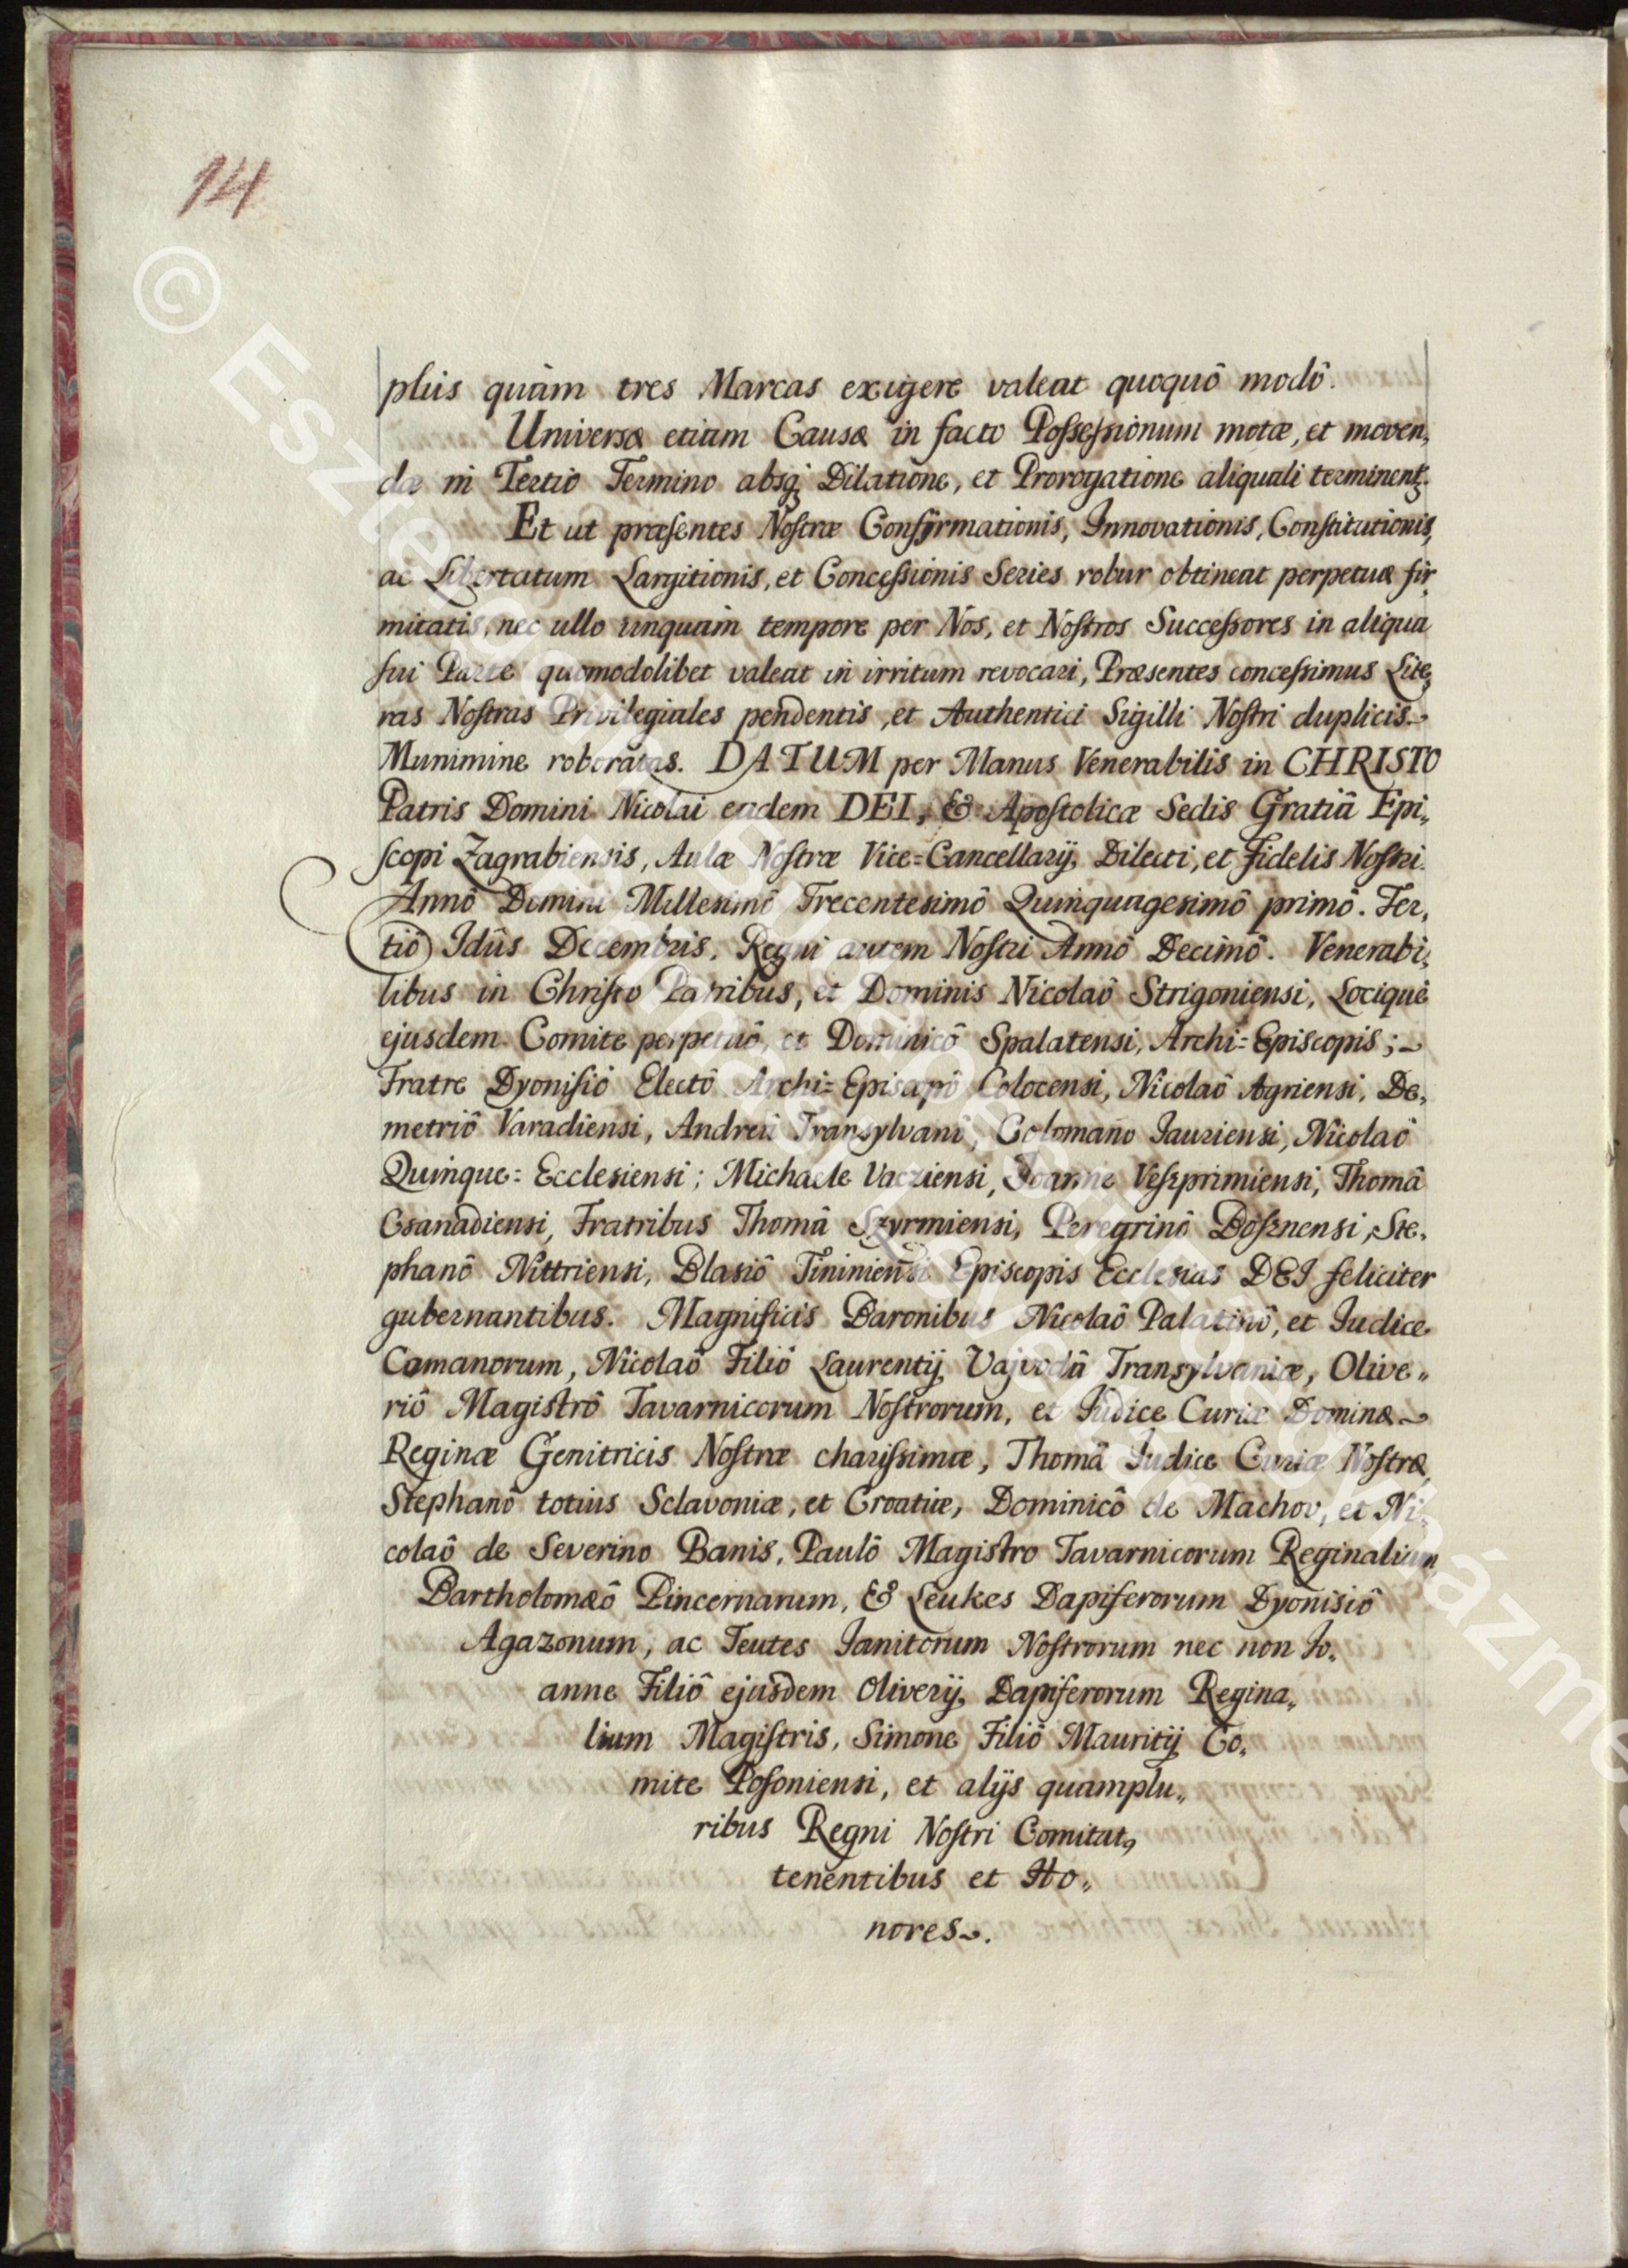 14
plùs quàm tres Marcas exigere valeat quoquô modô.
Universæ etiam Causæ in facto Possessionum motæ, et moven„
dæ in Tertio Termino absq; Dilatione, et Prorogatione aliquali terminent̃.
Et ut præsentes Nostræ Confirmationis, Innovationis, Constitutionis,
ac Libertatum Largitionis, et Concessionis Series robur obtineat perpetuæ fir„
mitatis, nec ullo unquàm tempore per Nos, et Nostros Successores in aliqua
sui Parte quomodolibet valeat in irritum revocari, Præsentes concessimus Lite„
ras Nostras Privilegiales pendentis, et Authentici Sigilli Nostri duplicis
Munimine roboratas. DATUM per Manus Venerabilis in CHRISTO
Patris Domini Nicolai eadem DEI, & Apostolicæ Sedis Gratiâ Epi„
scopi Zagrabiensis, Aulæ Nostræ Vice=Cancellarij, Dilecti, et Fidelis Nostri.
Annô Domini Millesimô Trecentesimô Quinquagesimô primô. Ter„
tiô Idûs Decembris. Regni autem Nostri Annô Decimô. Venerabi„
libus in Christo Patribus, et Dominis Nicolaô Strigoniensi, Lociquè
ejusdem Comite perpetuô, et Dominicô Spalatensi, Archi=Episcopis;
Fratre Dyonisiô Electô Archi=Episcopô Colocensi, Nicolaô Agriensi, De„
metriô Varadiensi, Andreâ Transylvanô, Colomano Jauriensi, Nicolaô
Quinque=Ecclesiensi; Michaele Vacziensi, Joanne Veszprimiensi, Thomâ
Csanadiensi, Fratribus Thomâ Szyrmiensi, Peregrinô Bosznensi, Ste„
phanô Nittriensi, Blasiô Tininiensi Episcopis Ecclesias DEI feliciter
gubernantibus. Magnificis Baronibus Nicolaô Palatinô, et Judice
Comanorum, Nicolaô Filiô Laurentij, Vajvodâ Transylvaniæ, Olive„
riô Magistrô Tavarnicorum Nostrorum, et Judice Curiæ Dominæ
Reginæ Genitricis Nostræ charissimæ, Thomâ Judice Curiæ Nostræ,
Stephanô totius Sclavoniæ, et Croatiæ, Dominicô de Machov, et Ni„
colaô de Severino Banis, Paulô Magistro Tavarnicorum Reginalium
Bartholomæô Pincernarum, & Leukes Dapiferorum Dyonisiô
Agazonum, ac Teutes Janitorum Nostrorum nec non Jo„
anne Filiô ejusdem Oliverij, Dapiferorum Regina„
lium Magistris, Simone Filiô Mauritij Co„
mite Posoniensi, et alijs quamplu„
ribus Regni Nostri Comitat9
tenentibus et Ho„
nores.